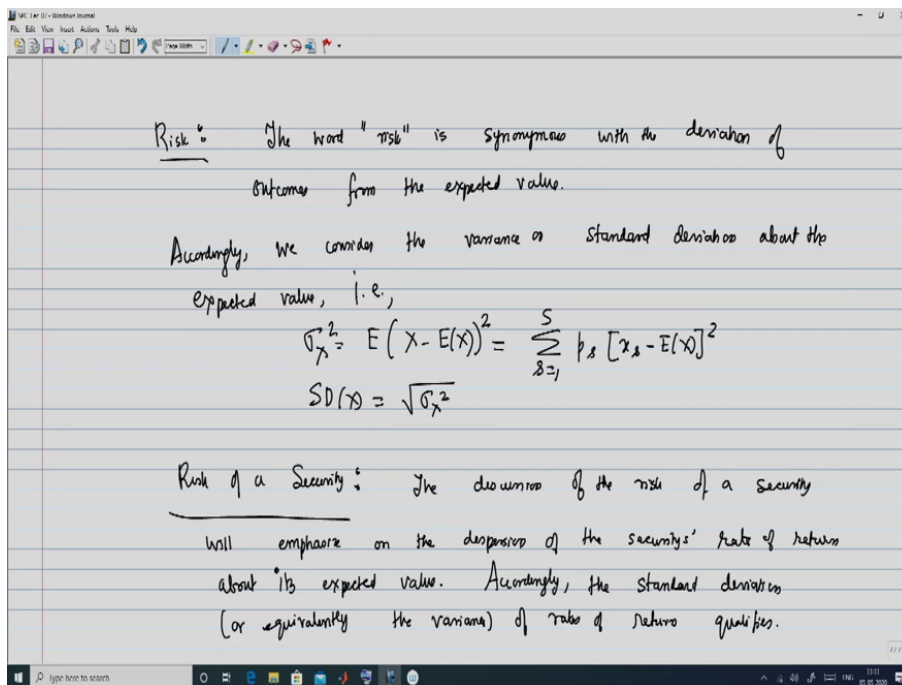 SPC Lec 07 - Windows Journal
File Edit View Insert Actions Tools Help
Page Width
Risk : The word "risk" is synonymous with the deviation of
outcomes from the expected value.
Accordingly, we consider the variance or standard deviation about the
expected value, i.e.,
σ_X² = E(X - E(X))² = ∑_{s=1}^{S} p_s [x_s - E(X)]²
SD(X) = √σ_X²
Risk of a Security : The discussion of the risk of a security
will emphasize on the despersion of the securitys' rate of return
about its expected value. Accordingly, the standard deviation
(or equivalently the variance) of rates of return qualifies.
Type here to search
ENG
11:11
05-05-2020